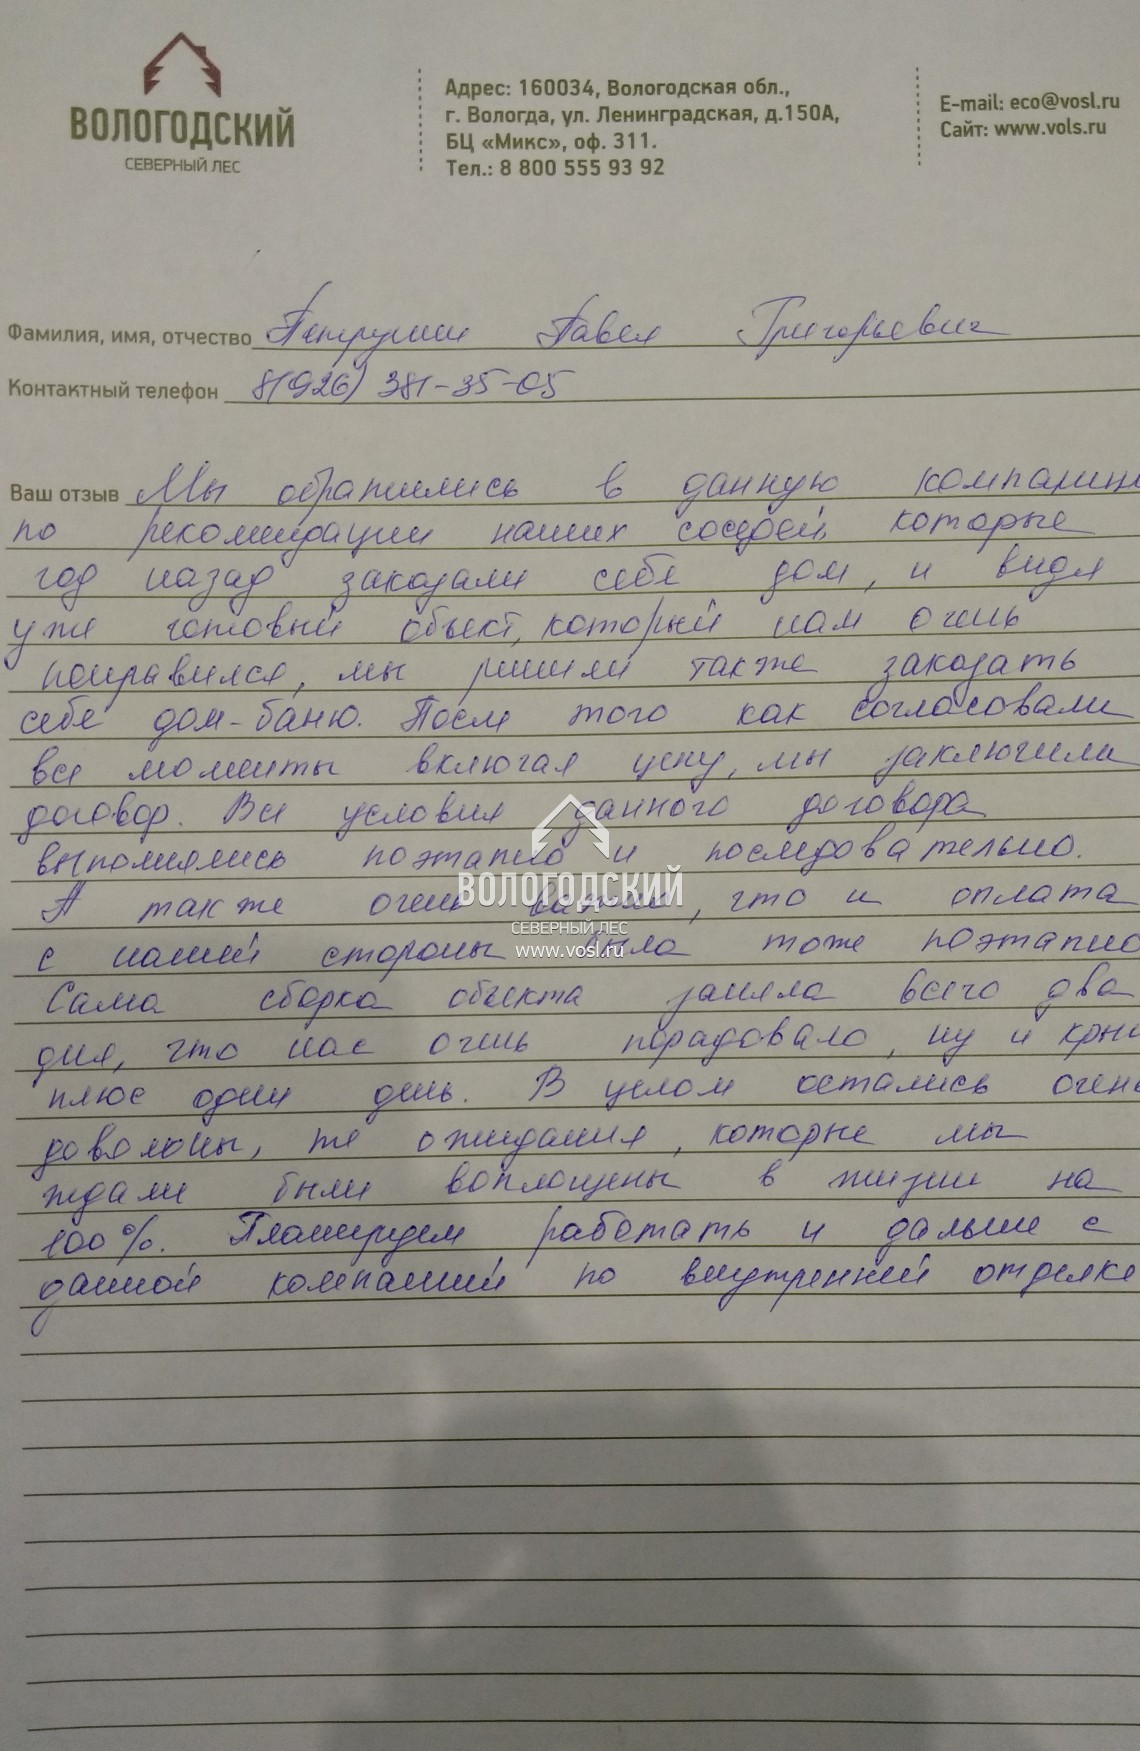 ВОЛОГОДСКИЙ
СЕВЕРНЫЙ ЛЕС
Адрес: 160034, Вологодская обл.,
г. Вологда, ул. Ленинградская, д.150А,
БЦ «Микс», оф. 311.
Тел.: 8 800 555 93 92
E-mail: eco@vosl.ru
Сайт: www.vols.ru
Фамилия, имя, отчество Петрушин Павел Григорьевич
Контактный телефон 8(926) 381-35-05
Ваш отзыв Мы обратились в данную компанию
по рекомендации наших соседей, которые
год назад заказали себе дом, и видя
уже готовый объект, который нам очень
понравился, мы решили также заказать
себе дом-баню. После того как согласовали
все моменты включая цену, мы заключили
договор. Все условия данного договора
выполнялись поэтапно и последовательно.
А также очень важно, что и оплата
с нашей стороны была тоже поэтапно
Сама сборка объекта заняла всего два
дня, что нас очень порадовало, ну и кры
плюс один день. В целом остались очень
довольны, те ожидания, которые мы
ждали были воплощены в жизни на
100%. Планируем работать и дальше с
данной компанией по внутренней отделке
ВОЛОГОДСКИЙ
СЕВЕРНЫЙ ЛЕС
www.vosl.ru